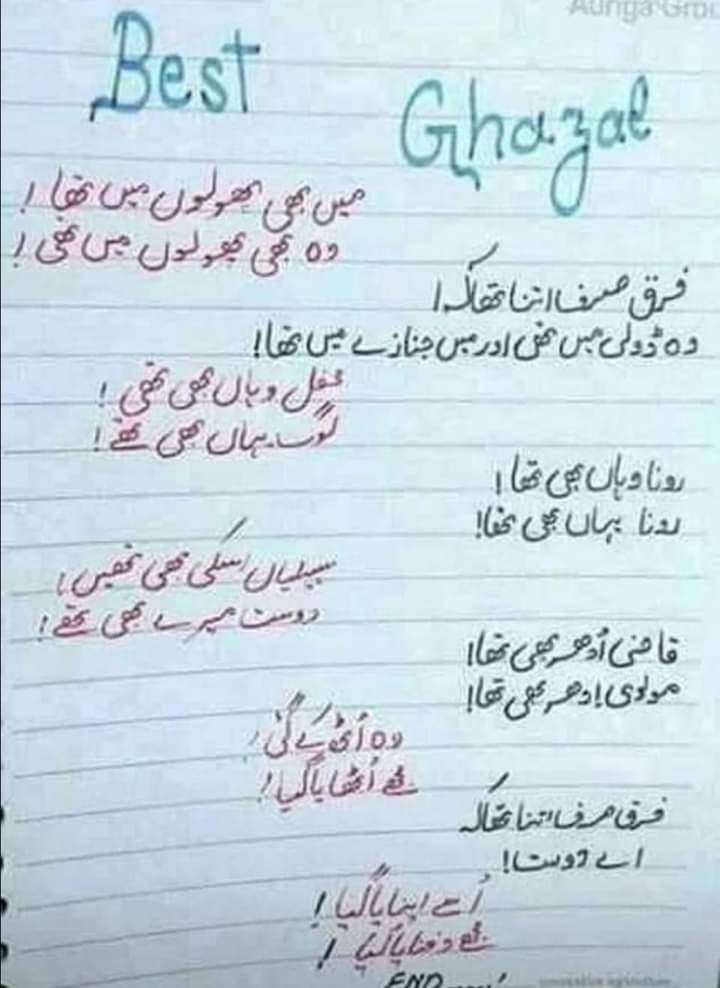 Best
Ghazal
میں بھی پھولوں میں تھا!
وہ بھی پھولوں میں تھی!
فرق صرف اتنا تھا کہ!
وہ ڈولی میں تھی اور میں جنازے میں تھا!
محفل وہاں بھی تھی!
لوگ یہاں بھی تھے!
رونا وہاں بھی تھا!
رونا یہاں بھی تھا!
سہیلیاں اسکی بھی تھیں!
دوست میرے بھی تھے!
قاضی اُدھر بھی تھا!
مولوی اِدھر بھی تھا!
وہ اُٹھ کے گئی!
مجھے اُٹھایا گیا!
فرق صرف اتنا تھا کہ
اے دوست!
اُسے اپنایا گیا!
مجھے دفنایا گیا!
END